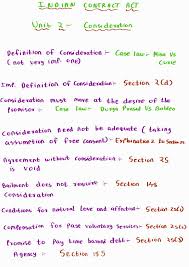 INDIAN CONTRACT ACT
Unit 2 - Consideration
Definition of Consideration :- Case law - Misa Vs
(not very imp. one) Currie
Imp. Definition of Consideration :- Section 2(d)
Consideration must move at the desire of the
Promisor :- Case law - Durga Prasad Vs Baldeo
Consideration need not be adequate (taking
assumption of free consent) - Explanation 2 to Section 25
Agreement without consideration :- Section 25
is void
Bailment does not require :- Section 148
Consideration
Conditions for natural love and affection :- Section 25(1)
Compensation for Past voluntary services :- Section 25(2)
Promise to Pay time barred debt - Section 25(3)
Agency :- Section 185